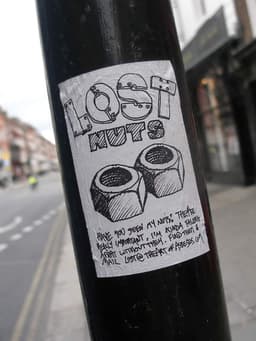 LOST
NUTS
HAVE YOU SEEN MY NUTS? THEY'RE
REALLY IMPORTANT, I'M KINDA FALLING
APART WITHOUT THEM. FIND THEM &
MAIL LOST@THEARTOF